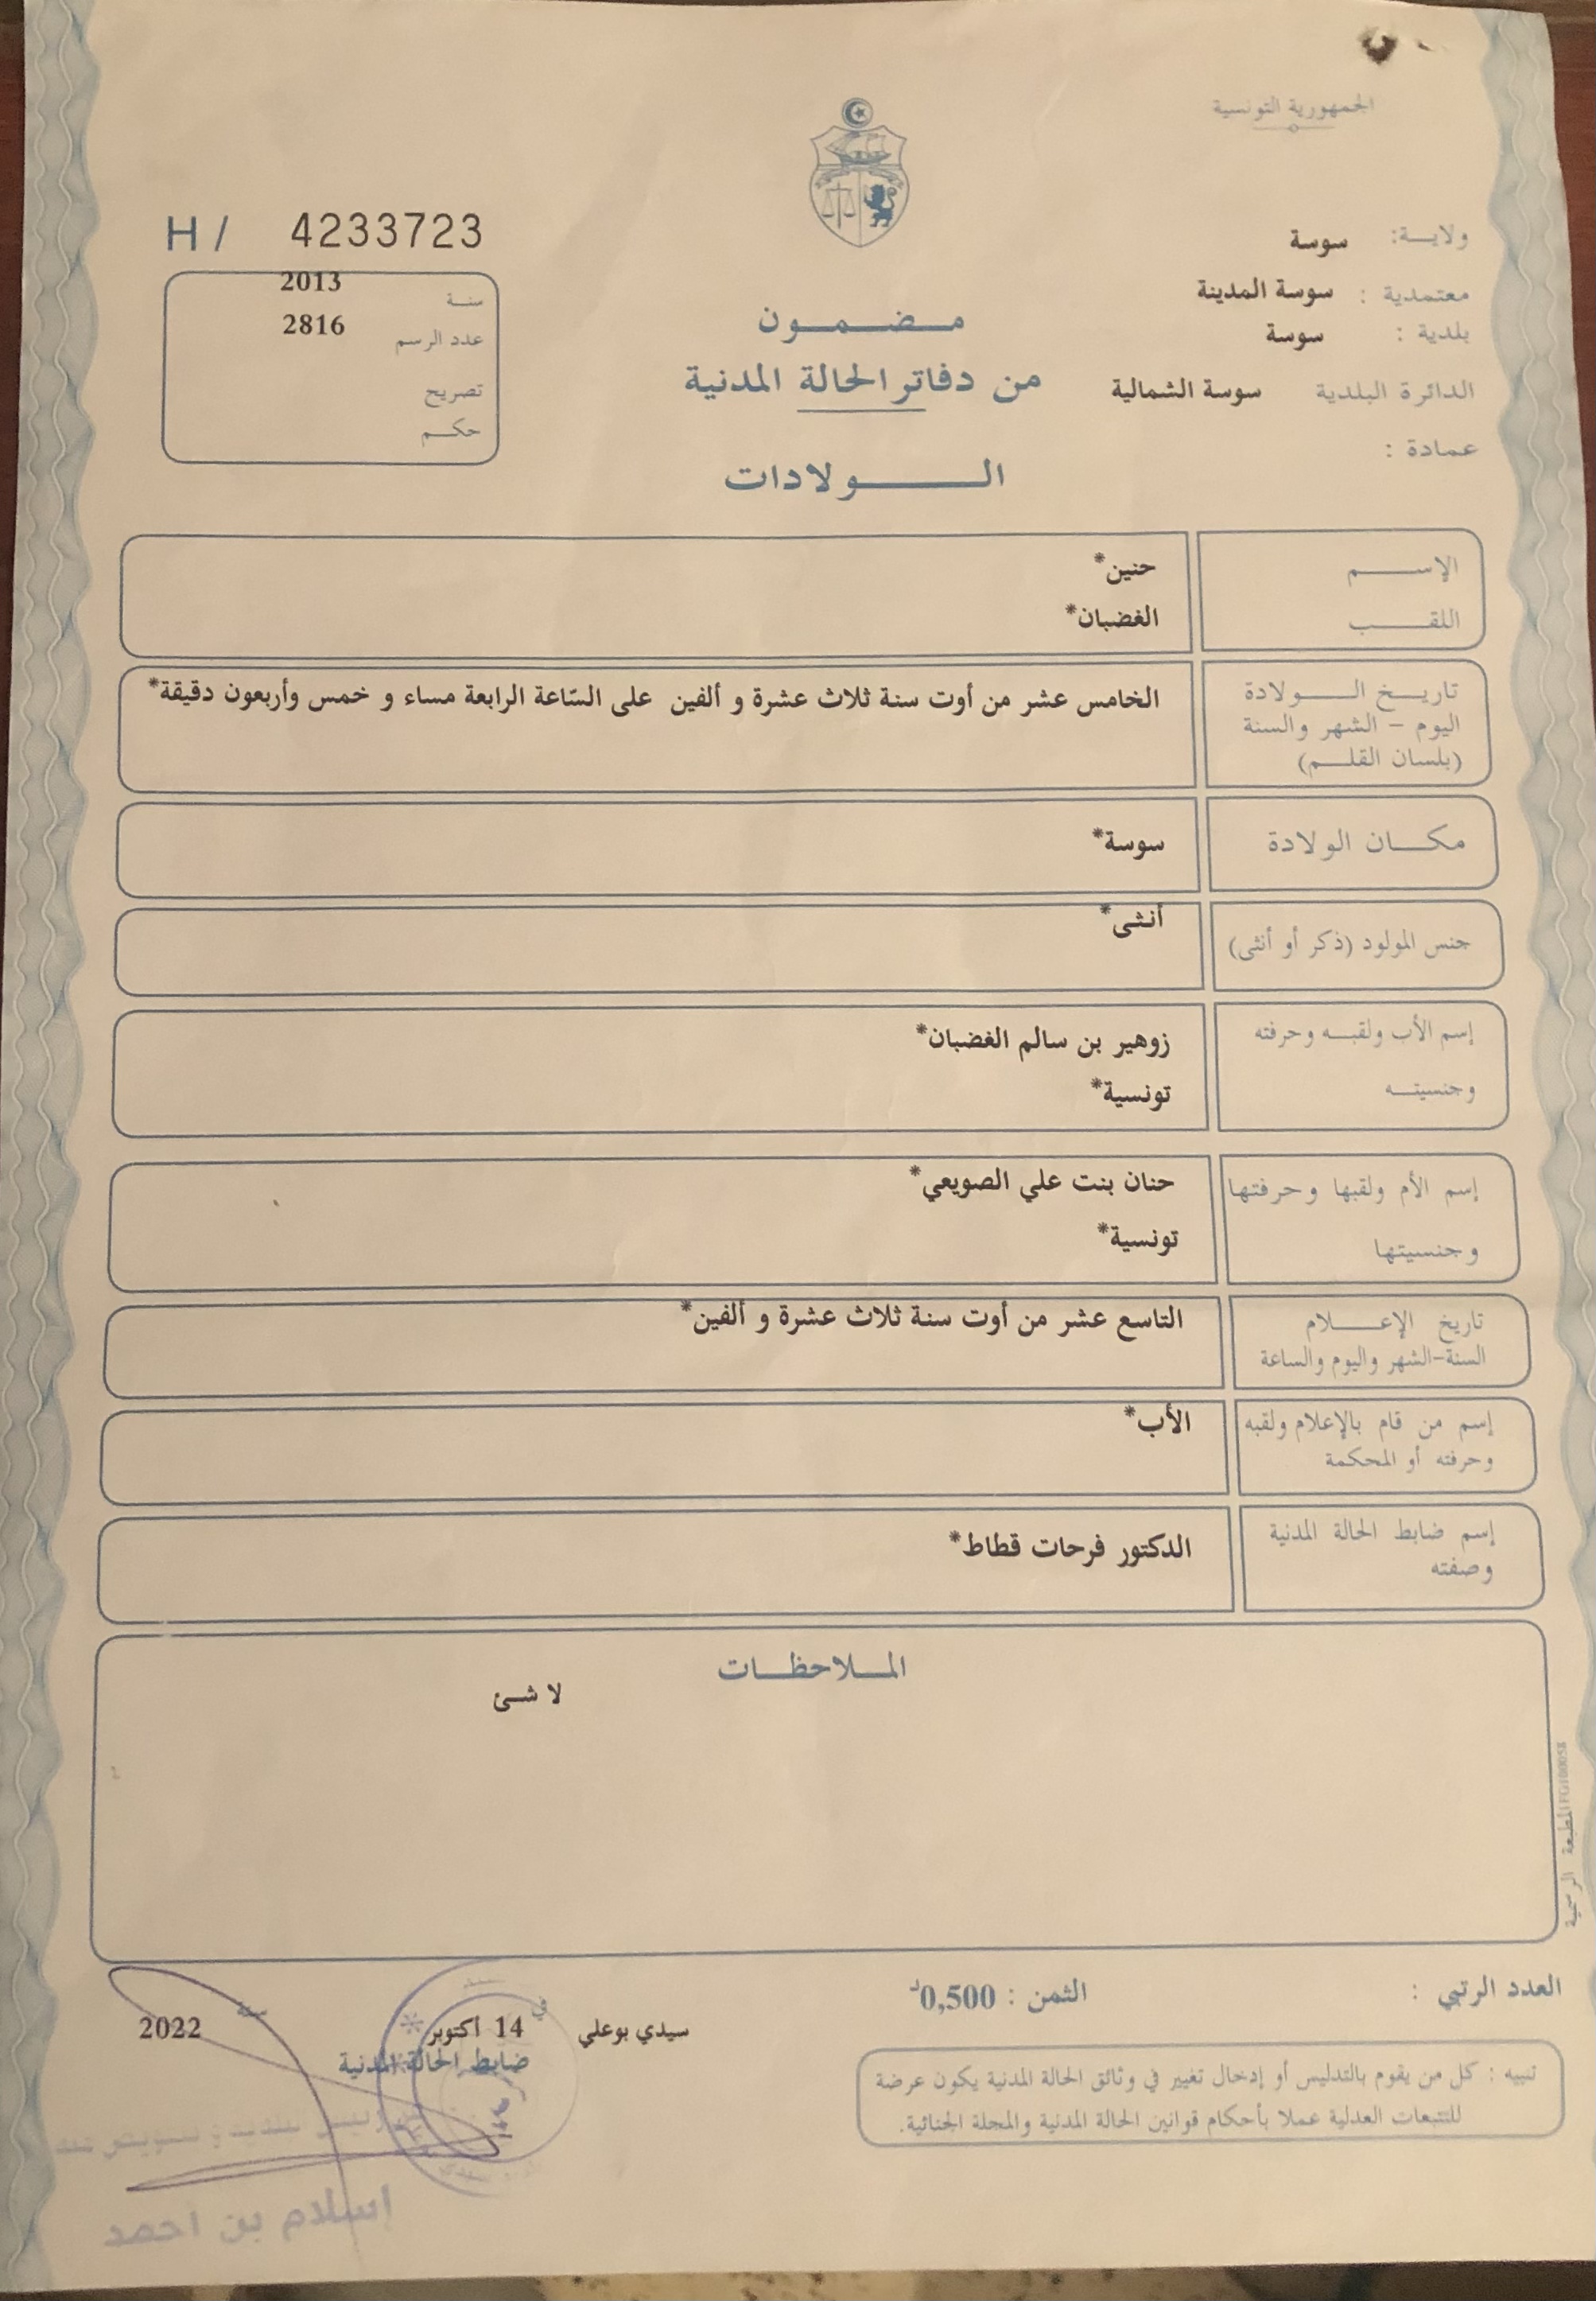 الجمهورية التونسية
ولاية: سوسة
معتمدية : سوسة المدينة
بلدية : سوسة
الدائرة البلدية سوسة الشمالية
عمادة :
H / 4233723
سنة 2013
عدد الرسم 2816
تصريح
حكم
مضمون
من دفاتر الحالة المدنية
الولادات
الإسم حنين*
اللقب الغضبان*
تاريخ الولادة
اليوم - الشهر والسنة
(بلسان القلم)
الخامس عشر من أوت سنة ثلاث عشرة و ألفين على السّاعة الرابعة مساء و خمس وأربعون دقيقة*
مكان الولادة سوسة*
جنس المولود (ذكر أو أنثى) أنثى*
إسم الأب ولقبه وحرفته زوهير بن سالم الغضبان*
وجنسيته تونسية*
إسم الأم ولقبها وحرفتها حنان بنت علي الصويعي*
وجنسيتها تونسية*
تاريخ الإعلام
السنة-الشهر واليوم والساعة
التاسع عشر من أوت سنة ثلاث عشرة و ألفين*
إسم من قام بالإعلام ولقبه
وحرفته أو المحكمة
الأب*
إسم ضابط الحالة المدنية
وصفته
الدكتور فرحات قطاط*
الملاحظات
لا شئ
المطبعة الرسمية
العدد الرتبي :
الثمن : 0,500د
سيدي بوعلي في 14 أكتوبر سنة 2022
ضابط الحالة المدنية
إسلام بن احمد
تنبيه : كل من يقوم بالتدليس أو إدخال تغيير في وثائق الحالة المدنية يكون عرضة
للتتبعات العدلية عملا بأحكام قوانين الحالة المدنية والمجلة الجنائية.